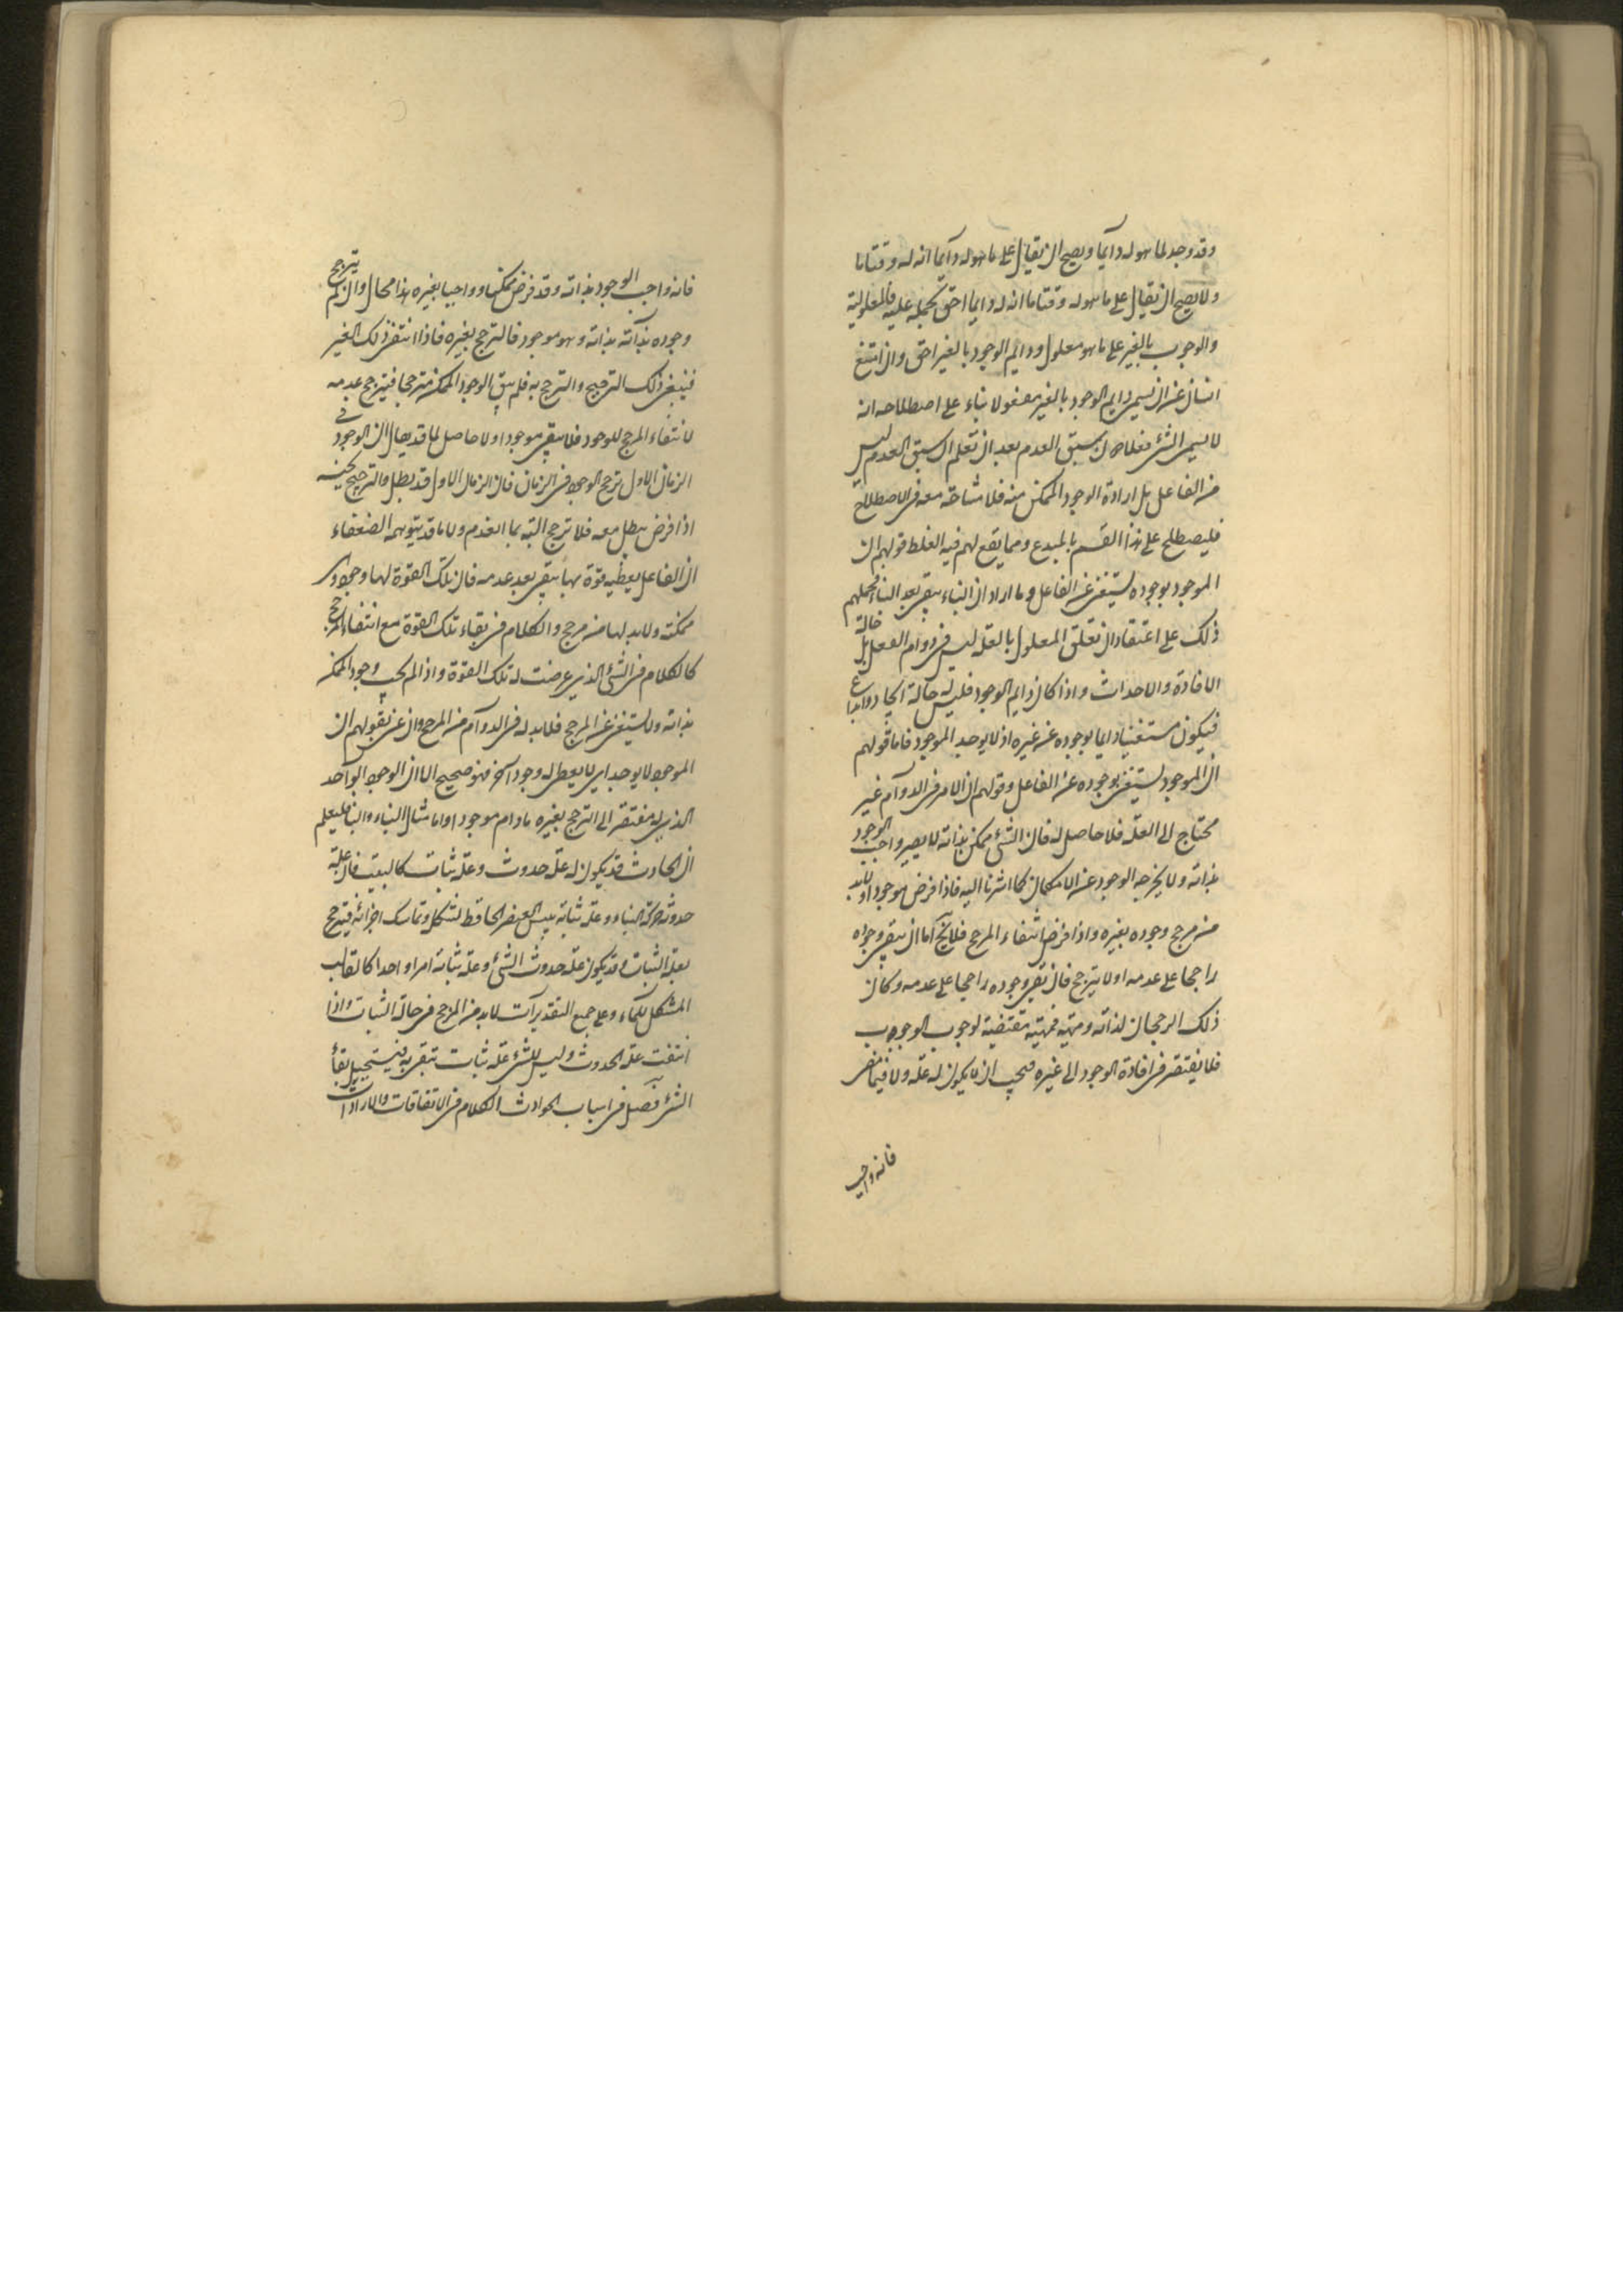 وقد وجد لما هو له دآيما ويصح ان يقال على ما هو له دآيما انه له وقتا ما
ولا يصح ان يقال على ما هو له وقتا ما انه له دايما احق بحمله عليه فالمعلولية
والوجوب بالغير على ما هو معلول ودايم الوجود بالغير احق وان امتنع
انسان عن ان يسمى دايم الوجود بالغير مفعولا بناء على اصطلاحه انه
لا يسمى الشئ فعلا الا ان سبق العدم بعد ان تعلم ان سبق العدم ليس
من الفاعل بل ارادة الوجود الممكن منه فلا مشاحة معه فى الاصطلاح
فليصطلح على هذا القسم بالمبدع ومما يقع لهم فيه الغلط قولهم ان
الموجود بوجوده يستغنى عن الفاعل وما اراد ان البناء يبقى بعد البناء تحملهم
ذلك على اعتقاد ان تعلق المعلول بالعلة ليس فى دوام الفعل بل حالة
الافادة والاحداث واذا كان دايم الوجود فليس له حالة ايجاد وابداع
فيكون مستغنيا دايما بوجوده عن غيره اذ لا يوجد الموجود فاما قولهم
ان الموجود يستغنى بوجوده عن الفاعل وقولهم ان الامر فى الدوآم غير
محتاج الى العلة فلا حاصل له فان الشئ ممكن بذاته لا يصير واجب الوجود
بذاته ولا يخرجه الوجود عن الامكان كما اشرنا اليه فاذا فرض موجودا لابد
من مرجح وجوده بغيره واذا فرض انتفاء المرجح فلا يخ اما ان يبقى وجوده
راجحا على عدمه او لا يترجح فان بقى وجوده راجحا على عدمه وكان
ذلك الرجحان لذاته ومهيته فمهيته مقتضية لوجوب الوجوب
فلا يفتقر فى افادة الوجود الى غيره فيجب ان لا يكون له علة ولا فيما مضى
فانه واجب
فانه واجب الوجود بذاته وقد فرض ممكنا وواجبا بغيره هذا محال وان لم يترجح
وجوده بذآته بذاته وهو موجود فالترجح بغيره فاذا انتفى ذلك الغير
فينبغى ذلك الترجيح والترجح به فلم يبق الوجود الممكن مترجحا فيترجح عدمه
لانتفاء المرجح للوجود فلا يبقى موجودا ولا حاصل لما قد يقال ان الوجود فى
الزمان الاول ترجح الوجود فى الزمان فان الزمان الاول قد بطل والترجيح بحينه
اذا فرض يبطل معه فلا ترجح البتة بما انعدم ولا ما قد يتوهمه الضعفاء
ان الفاعل يعطيه قوة بها يبقى بعد عدمه فان تلك القوة لها وجود وهى
ممكنة ولابد لها من مرجح والكلام فى بقاء تلك القوة مع انتفاء المرجح
كالكلام فى الشئ الذى عرضت له تلك القوة واذا لم يجب وجود الممكن
بذاته ولا يستغنى عن المرجح فلابد له فى الدوآم من المرجح وان عنى بقولهم ان
الموجود لا يوجد اى لا يعطى له وجود آخر فهو صحيح الا ان الوجود الواحد
الذى له مفتقر الى الترجح بغيره ما دام موجودا واما مثال البناء والبنا فليعلم
ان الحادث قد يكون له علة حدوث وعلة ثبات كالبيت فان علة
حدوثه حركة البناء وعلة ثباته يبس العنصر الحافظ لتشكل وتماسك اجزائه فيترجح
بعلة الثبات وقد يكون علة حدوث الشئ وعلة ثباته امرا واحدا كالقالب
المشكل للماء وعلى جميع التقديرآت لابد من المرجح فى حالة الثبات واذا
انتفت علة الحدوث وليس للشئ علة ثبات تبقى به فيستحيل بقآء
الشئ فصل فى اسباب الحوادث الكلام فى الاتفاقات والارادات